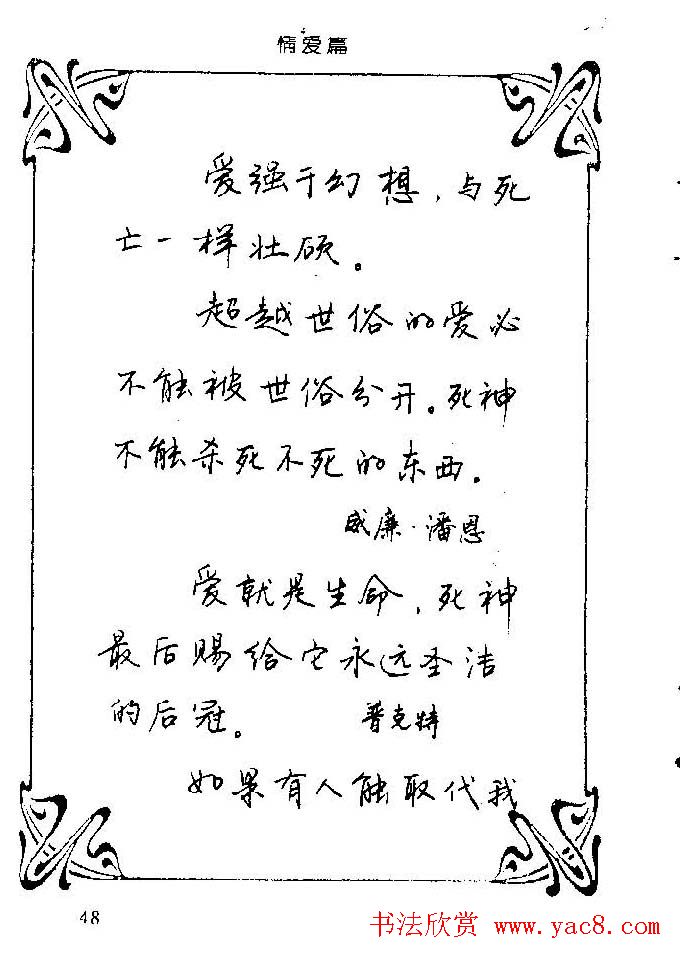 情爱篇
爱强于幻想，与死
亡一样壮硕。
超越世俗的爱必
不能被世俗分开。死神
不能杀死不死的东西。
威廉·潘恩
爱就是生命，死神
最后赐给它永远圣洁
的后冠。 普克特
如果有人能取代我
48
书法欣赏 www.yac8.com